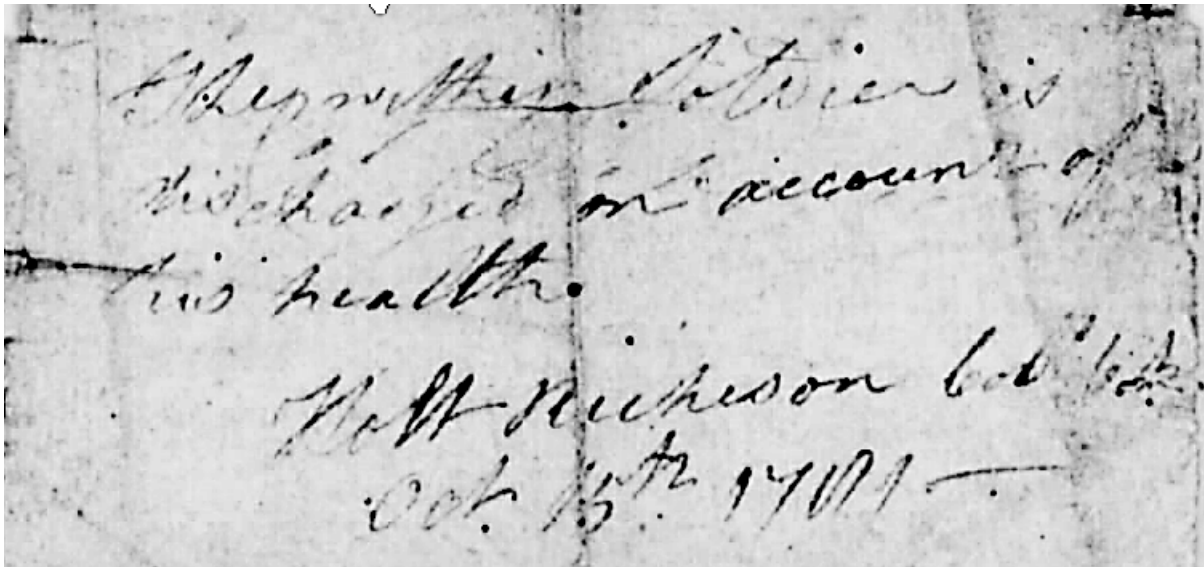 The within Soldier is
discharged on account of
his health.
Holt Richeson Col. Com
Oct. 15th 1781 —